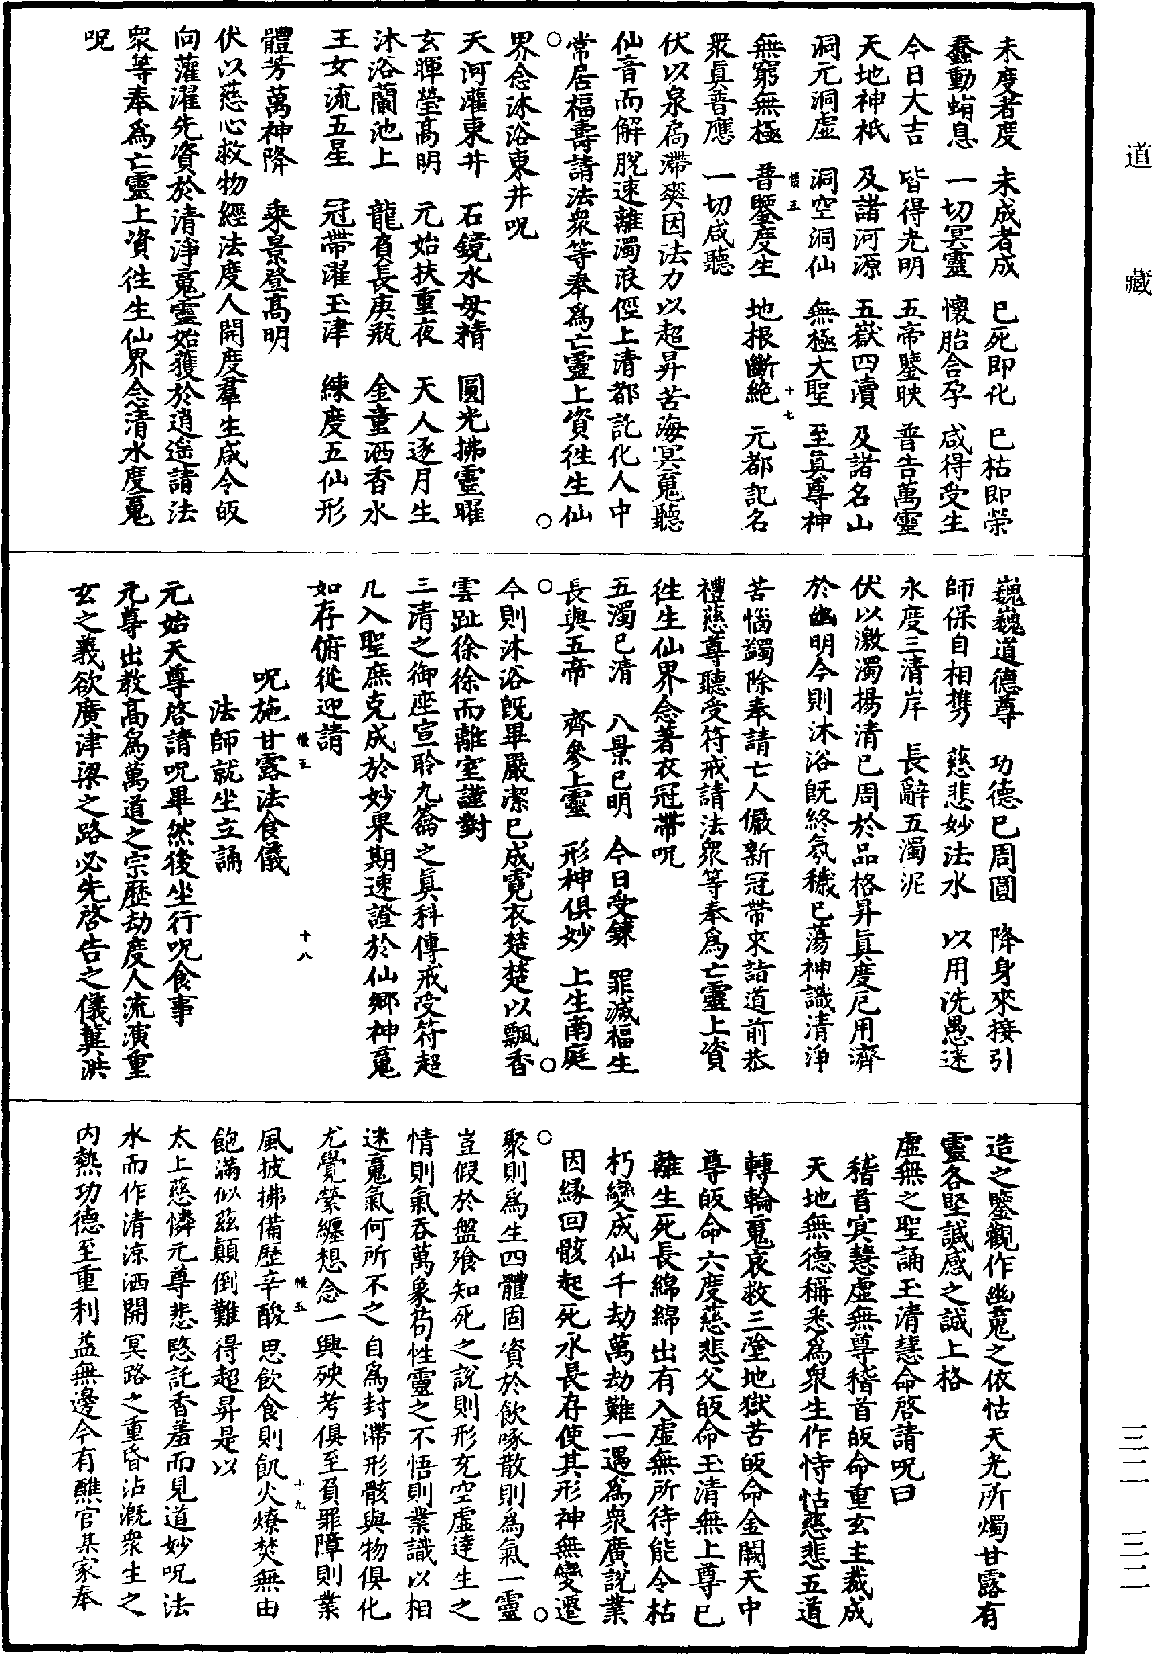 道藏
未度者度　未成者成　已死即化　已枯即榮
蠢動蛸息　一切冥靈　懷胎含孕　咸得受生
今日大吉　皆得光明　五帝鑒映　普告萬靈
天地神祇　及諸河源　五嶽四瀆　及諸名山
洞元洞虛　洞空洞仙　無極大聖　至真尊神
十七
無窮無極　普鑒度生　地根斷絶　元都記名
衆真普應　一切咸聽
伏以泉扃滯爽因法力以超昇苦海冥䰟聽
仙音而解脫速離濁浪徑上清都託化人中
常居福壽請法衆等奉爲亡靈上資徃生仙
界念沐浴東井呪
天河灌東井　石鏡水母精　圓光拂靈曜
玄暉瑩高明　元始扶重夜　天人逐月生
沐浴蘭池上　龍負長庚瓶　金童洒香水
玉女流五星　冠帶濯玉津　練度五仙形
體芳萬神降　乘景登高明
伏以慈心救物經法度人開度羣生咸令皈
向灌濯先資於清淨䰟靈始獲於逍遥請法
衆等奉爲亡靈上資徃生仙界念清水度䰟
呪
巍巍道德尊　功德已周圓　降身來接引
師保自相携　慈悲妙法水　以用洗愚迷
永度三清岸　長辭五濁泥
伏以激濁揚清已周於品格昇真度厄用濟
於幽明今則沐浴旣終氛穢已蕩神識清淨
苦惱蠲除奉請亡人儼新冠帶來詣道前恭
禮慈尊聽受符戒請法衆等奉爲亡靈上資
徃生仙界念著衣冠帶呪
五濁已清　八景已明　今日受鍊　罪滅福生
長與五帝　齊參上靈　形神俱妙　上生南庭
今則沐浴旣畢嚴潔已成霓衣楚楚以飄香
雲趾徐徐而離室謹對
三清之御座宣聆九籥之真科傳戒受符超
凡入聖庶克成於妙果期速證於仙鄉神䰟
如存俯從迎請
十八
呪施甘露法食儀
法師就坐立誦
元始天尊啓請呪畢然後坐行呪食事
元尊出教高爲萬道之宗歷劫度人流演重
玄之義欲廣津梁之路必先啓告之儀冀洪
造之鑒觀作幽䰟之依怙天光所燭甘露有
靈各堅誠感之誠上格
虛無之聖誦玉清慧命啓請呪曰
稽首㝠慧虛無尊稽首皈命重玄主裁成
天地無德稱悉爲衆生作恃怙慈悲五道
轉輪䰟哀救三塗地獄苦皈命金闕天中
尊皈命六度慈悲父皈命玉清無上尊已
離生死長綿綿出有入虛無所待能令枯
朽變成仙千劫萬劫難一遇爲衆廣說業
因緣回骸起死水長存使其形神無變遷
聚則爲生四體固資於飲啄散則爲氣一靈
豈假於盤飱知死之說則形充空虛達生之
情則氣吞萬象苟性靈之不悟則業識以相
迷䰟氣何所不之自爲封滯形骸與物俱化
尤覺縈纏想念一興殃考俱至負罪障則業
十九
風披拂備歷辛酸思飲食則飢火燎焚無由
飽滿似茲顛倒難得超昇是以
太上慈憐元尊悲愍託香羞而見道妙呪法
水而作清涼洒開冥路之重昏沾溉衆生之
内熱功德至重利益無邊今有醮官某家奉
三二　三二